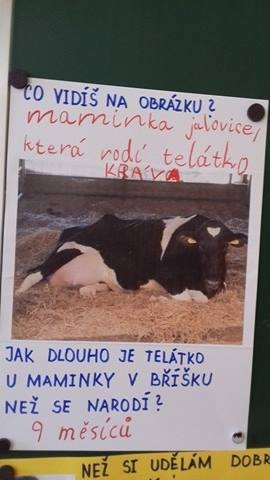 CO VIDÍŠ NA OBRÁZKU?
maminka jalovice,
která rodí telátko
KRÁVA
JAK DLOUHO JE TELÁTKO
U MAMINKY V BŘÍŠKU
NEŽ SE NARODÍ?
9 měsíců
NEŽ SI UDĚLÁM DOBR